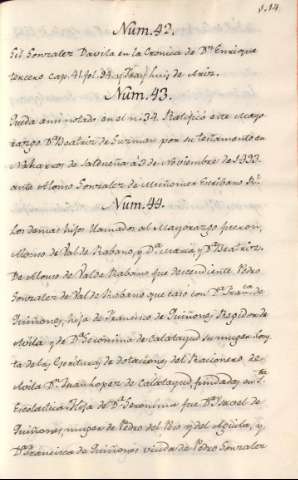 114
Num. 42.
Gil Gonzalez Davila en la Cronica de Dn. Enrique
tercero cap. 41 fol. 94. y Fray Luis de Ariz.
Num. 43.
Queda annotado en el n.34. Ratificó este Mayo
razgo Da. Beatriz de Guzman por su testamento en
Naharros de Saldueña á 3 de Noviembre de 1433.
ante Alonso Gonzalez de Escribano
Num. 44.
Los demas hijos llamados al Mayorazgo fueron,
Alonso de Valderabano, y Da. Maria, y Da. Beatriz.
De Alonso de Valderabano fue descendiente Pedro
Gonzalez de Valderabano que casó con Da. Franca. de
Quiñones, hija de Francisco de Quiñones Regidor de
Avila y de Da. Geronima de Calatayud su muger. cons
ta de la Escritura de dotacion del Racionero de
Avila Dn. Juan Lopez de Calatayud, fundada en Sta.
Escolastica. Hija de Da. Geronima fue Da. Isabel de
Quiñones, muger de Pedro del Peso y del Aguila, y
Da. Francisca de Quiñones viuda de Pedro Gonzalez